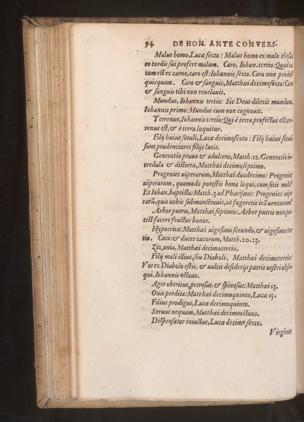 94 DE HOM. ANTE CONVERS.
Malus homo, Lucæ sexto: Malus homo ex malo thesau
ro cordis sui profert malum. Caro, Iohan. tertio: Quod na
tum est ex carne, caro est: Iohannis sexto. Caro non prodest
quicquam. Caro & sanguis, Matthæi decimosexto: Caro
& sanguis tibi non reuelauit.
Mundus, Iohannis tertio: Sic Deus dilexit mundum.
Iohannis primo: Mundus eum non cognouit.
Terrenus, Iohannis tertio: Qui è terra profectus est ter
renus est, & è terra loquitur.
Filij huius seculi, Lucæ decimosexto: Filij huius seculi
sunt prudentiores filijs lucis.
Generatio praua & adultera, Matth. 12. Generatio in
credula & distorta, Matthæi decimoseptimo.
Progenies uiperarum, Matthæi duodecimo: Progenies
uiperarum, quomodo potestis bona loqui, cum sitis mali?
Et Iohan. baptista: Matth. 3. ad Pharisæos: Progenies uipe
rarū, quis uobis submonstrauit, ut fugeretis
Arbor putris, Matthæi septimo: Arbor putris non po-
test facere fructus bonos.
Hypocritæ: Matthæi uigesimo secundo, & uigesimo ter
tio. Cæci: & duces cæcorum, Matth. 20. 23.
Zizania, Matthæi decimotertio.
Filij mali illius, seu Diaboli, Matthæi decimotertio:
Vos ex Diabolo estis, & uultis desiderijs patris uestri obse
qui. Iohannis octauo.
Ager obseritus, petrosus, & spinosus: Matthæi 13.
Ouis perdita: Matthæi decimoquinto, Lucæ 15.
Filius prodigus, Lucæ decimoquinto.
Seruus nequam, Matthæi decimooctauo.
Dispensator iniustus, Lucæ decimo sexto.
Virgines